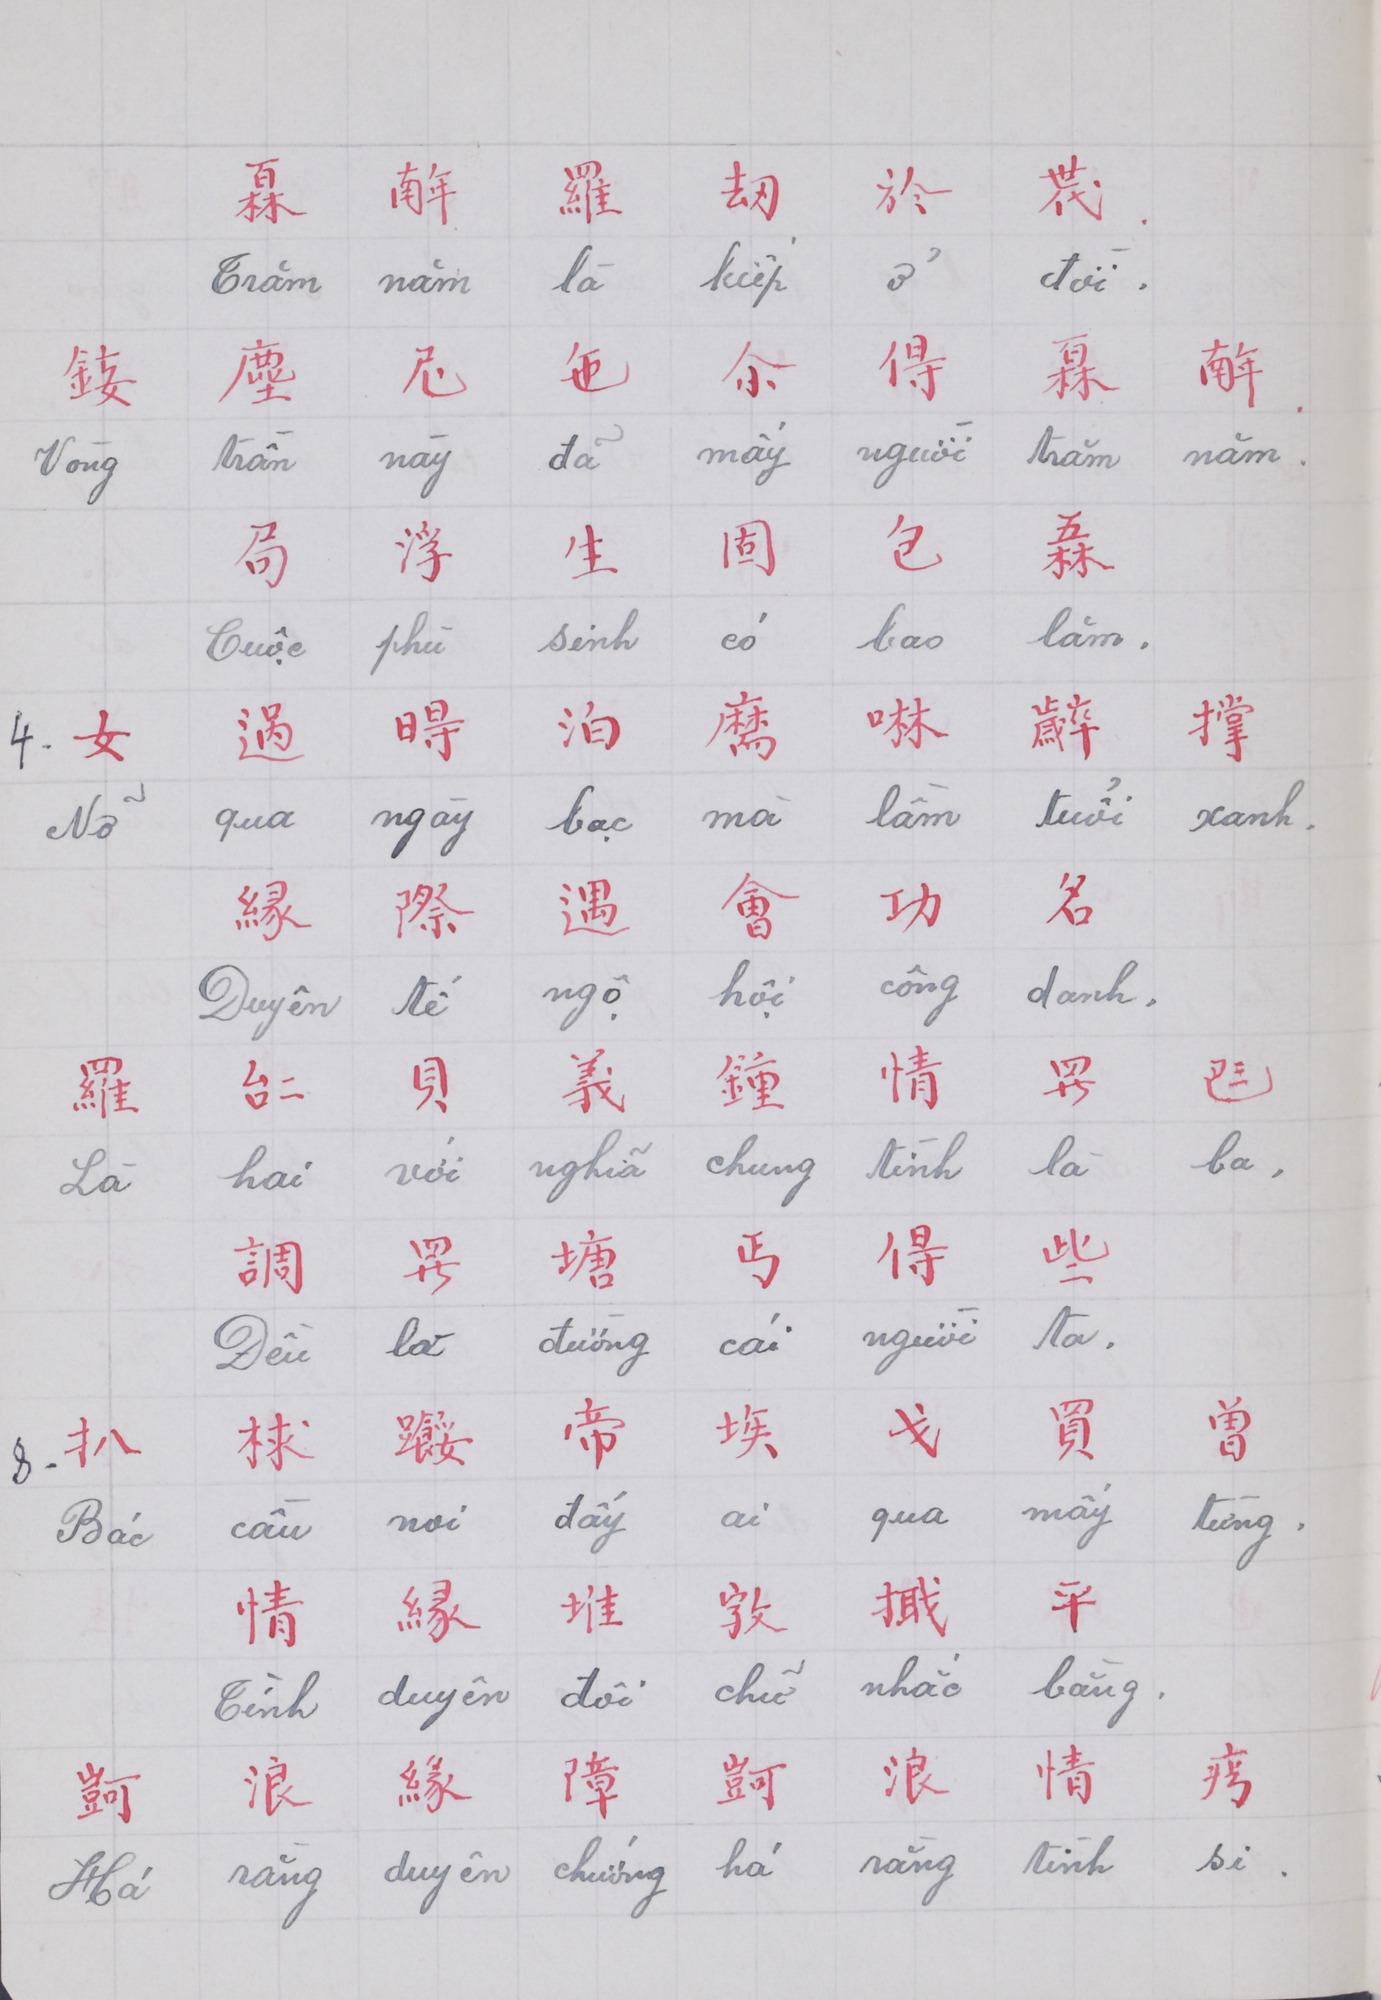 𤾓𢆥羅刼於𠁀.
Trăm năm là kiếp ở đời.
塵尼㐌尒得𤾓𢆥.
Vòng trần này đã mấy người trăm năm.
局浮生固包
Cuộc phù sinh có bao lăm.
4. 女過𣈜泊麽啉撑
Nỡ qua ngày bạc mà lầm tuổi xanh.
緣際遇會功名
Duyên tế ngộ hội công danh.
羅𠄩貝義鍾情𪜀𠀧
Là hai với nghĩa chung tình là ba.
調𪜀塘丐得些
Đều là đường cái người ta.
8. 扒梂帝埃戈買曾
Bác cầu nơi đấy ai qua mấy từng.
情緣堆𡨸平
Tình duyên đôi chữ nhắc bằng.
浪緣障浪情
Há rằng duyên chướng há rằng tình si.